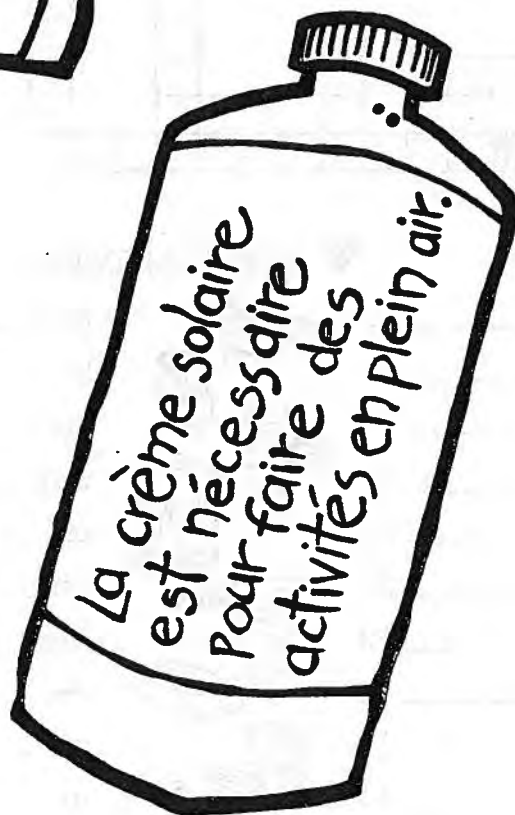 La crème solaire
est nécessaire
pour faire des
activités en plein air.